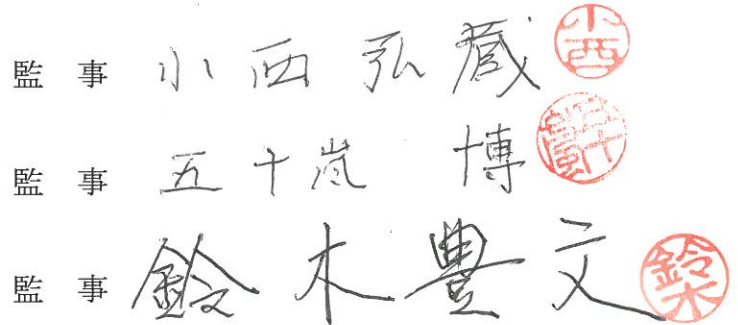 監 事 小 西 弘 蔵 小西
監 事 五 十 嵐 博 五十嵐
監 事 鈴 木 豊 文 鈴木